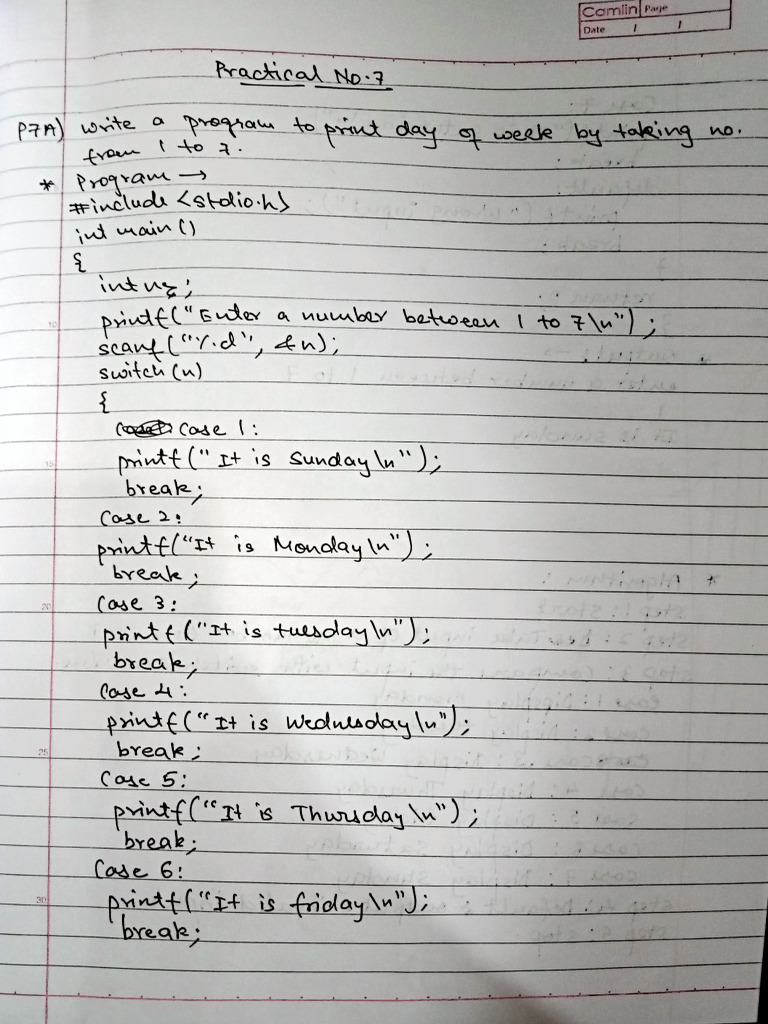 Camlin Page
Date / /
Practical No. 7
P7A) Write a program to print day of week by taking no.
from 1 to 7.
* Program →
#include <stdio.h>
int main()
{
int n;
printf("Enter a number between 1 to 7\n");
scanf("%d", &n);
switch (n)
{
case 1:
printf("It is Sunday\n");
break;
Case 2:
printf("It is Monday\n");
break;
Case 3:
printf("It is tuesday\n");
break;
Case 4:
printf("It is Wednesday\n");
break;
Case 5:
printf("It is Thursday\n");
break;
Case 6:
printf("It is friday\n");
break;